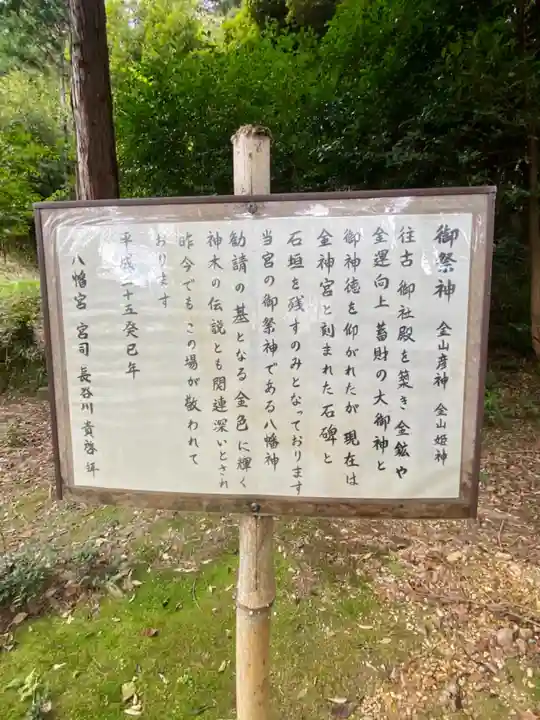 御祭神 金山彦神 金山姫神
往古 御社殿を築き金鉱や
金運向上 蓄財の大御神と
御神徳を仰がれたが 現在は
金神宮と刻まれた石碑と
石垣を残すのみとなっております
当宮の御祭神である八幡神
勧請の基となる金色に輝く
神木の伝説とも関連深いとされ
昨今でもこの場が敬われて
おります
平成二十五癸巳年
八幡宮 宮司 長谷川 貴啓 拝